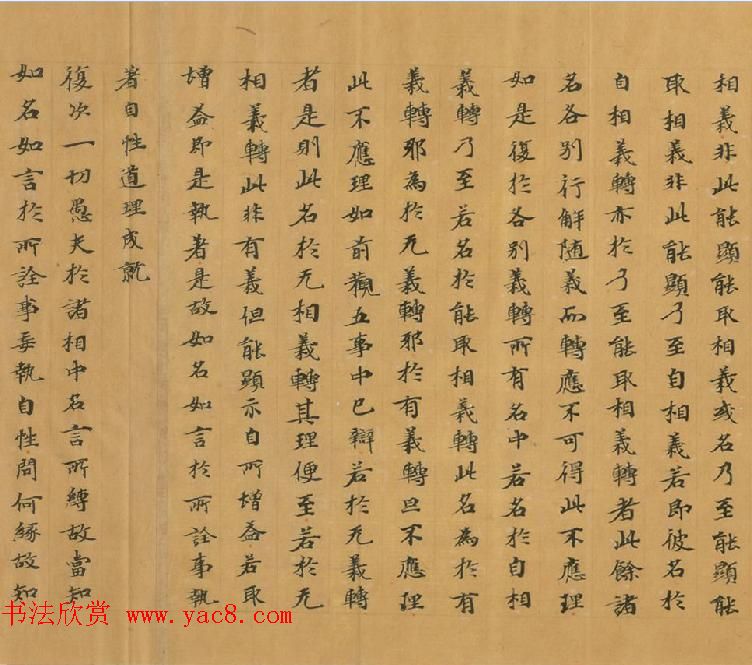 相義非此能顯能取相義或名乃至能顯能
取相義非此能顯乃至自相義若即彼名於
自相義轉亦於乃至能取相義轉者此餘諸
名各別行解隨義而轉應不可得此不應理
如是復於各別義轉所有名中若名於自相
義轉乃至若名於能取相義轉此名為於有
義轉邪為於无義轉邪於有義轉且不應理
此不應理如前觀五事中已辯若於无義轉
者是則此名於无相義轉其理便至若於无
相義轉此非有義但能顯示自所增益若取
增益即是執著是故如名如言於所詮事執
著自性道理成就
復次一切愚夫於諸相中名言所縛故當知
如名如言於所詮事妄執自性問何緣故知
书法欣赏 www.yac8.com